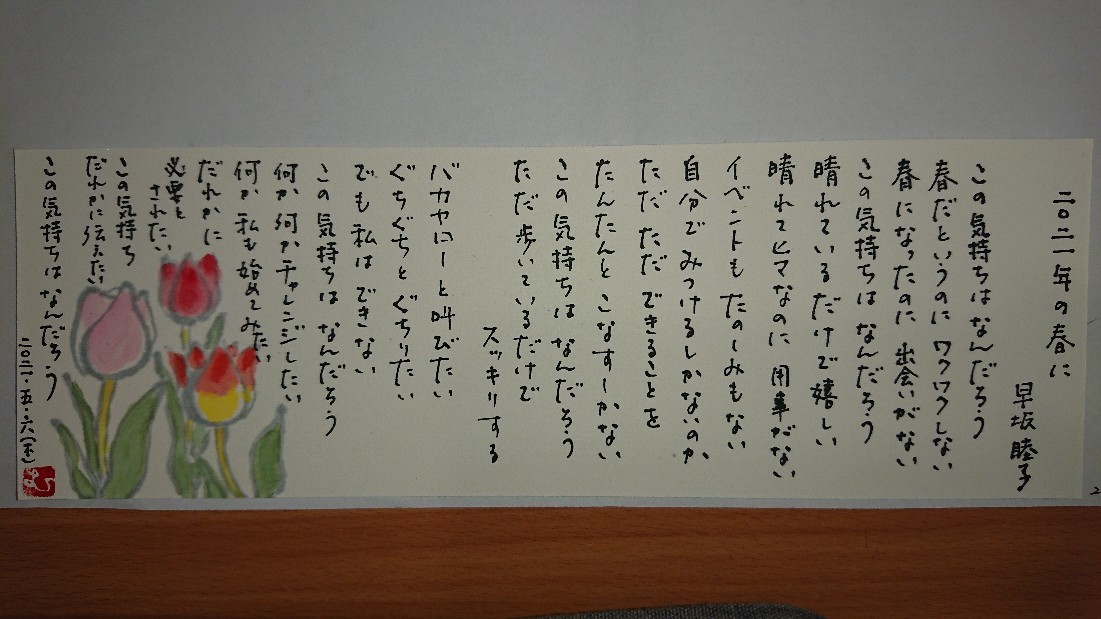 二〇二一年の春に
早坂睦子
この気持ちはなんだろう
春だというのに ワクワクしない
春になったのに 出会いがない
この気持ちは なんだろう
晴れている だけで嬉しい
晴れてヒマなのに 用事がない
イベントも たのしみもない
自分で みつけるしかないのか
ただ ただ できることを
たんたんと こなすしかない
この気持ちは なんだろう
ただ 歩いているだけで
スッキリする
バカヤローと叫びたい
ぐちぐちと ぐちりたい
でも 私は できない
この気持ちは なんだろう
何か 何か チャレンジしたい
何か 私も 始めてみたい
だれかに
必要と
されたい
この気持ち
だれかに伝えたい
この気持ちはなんだろう
二〇二一・五・六(木)
2